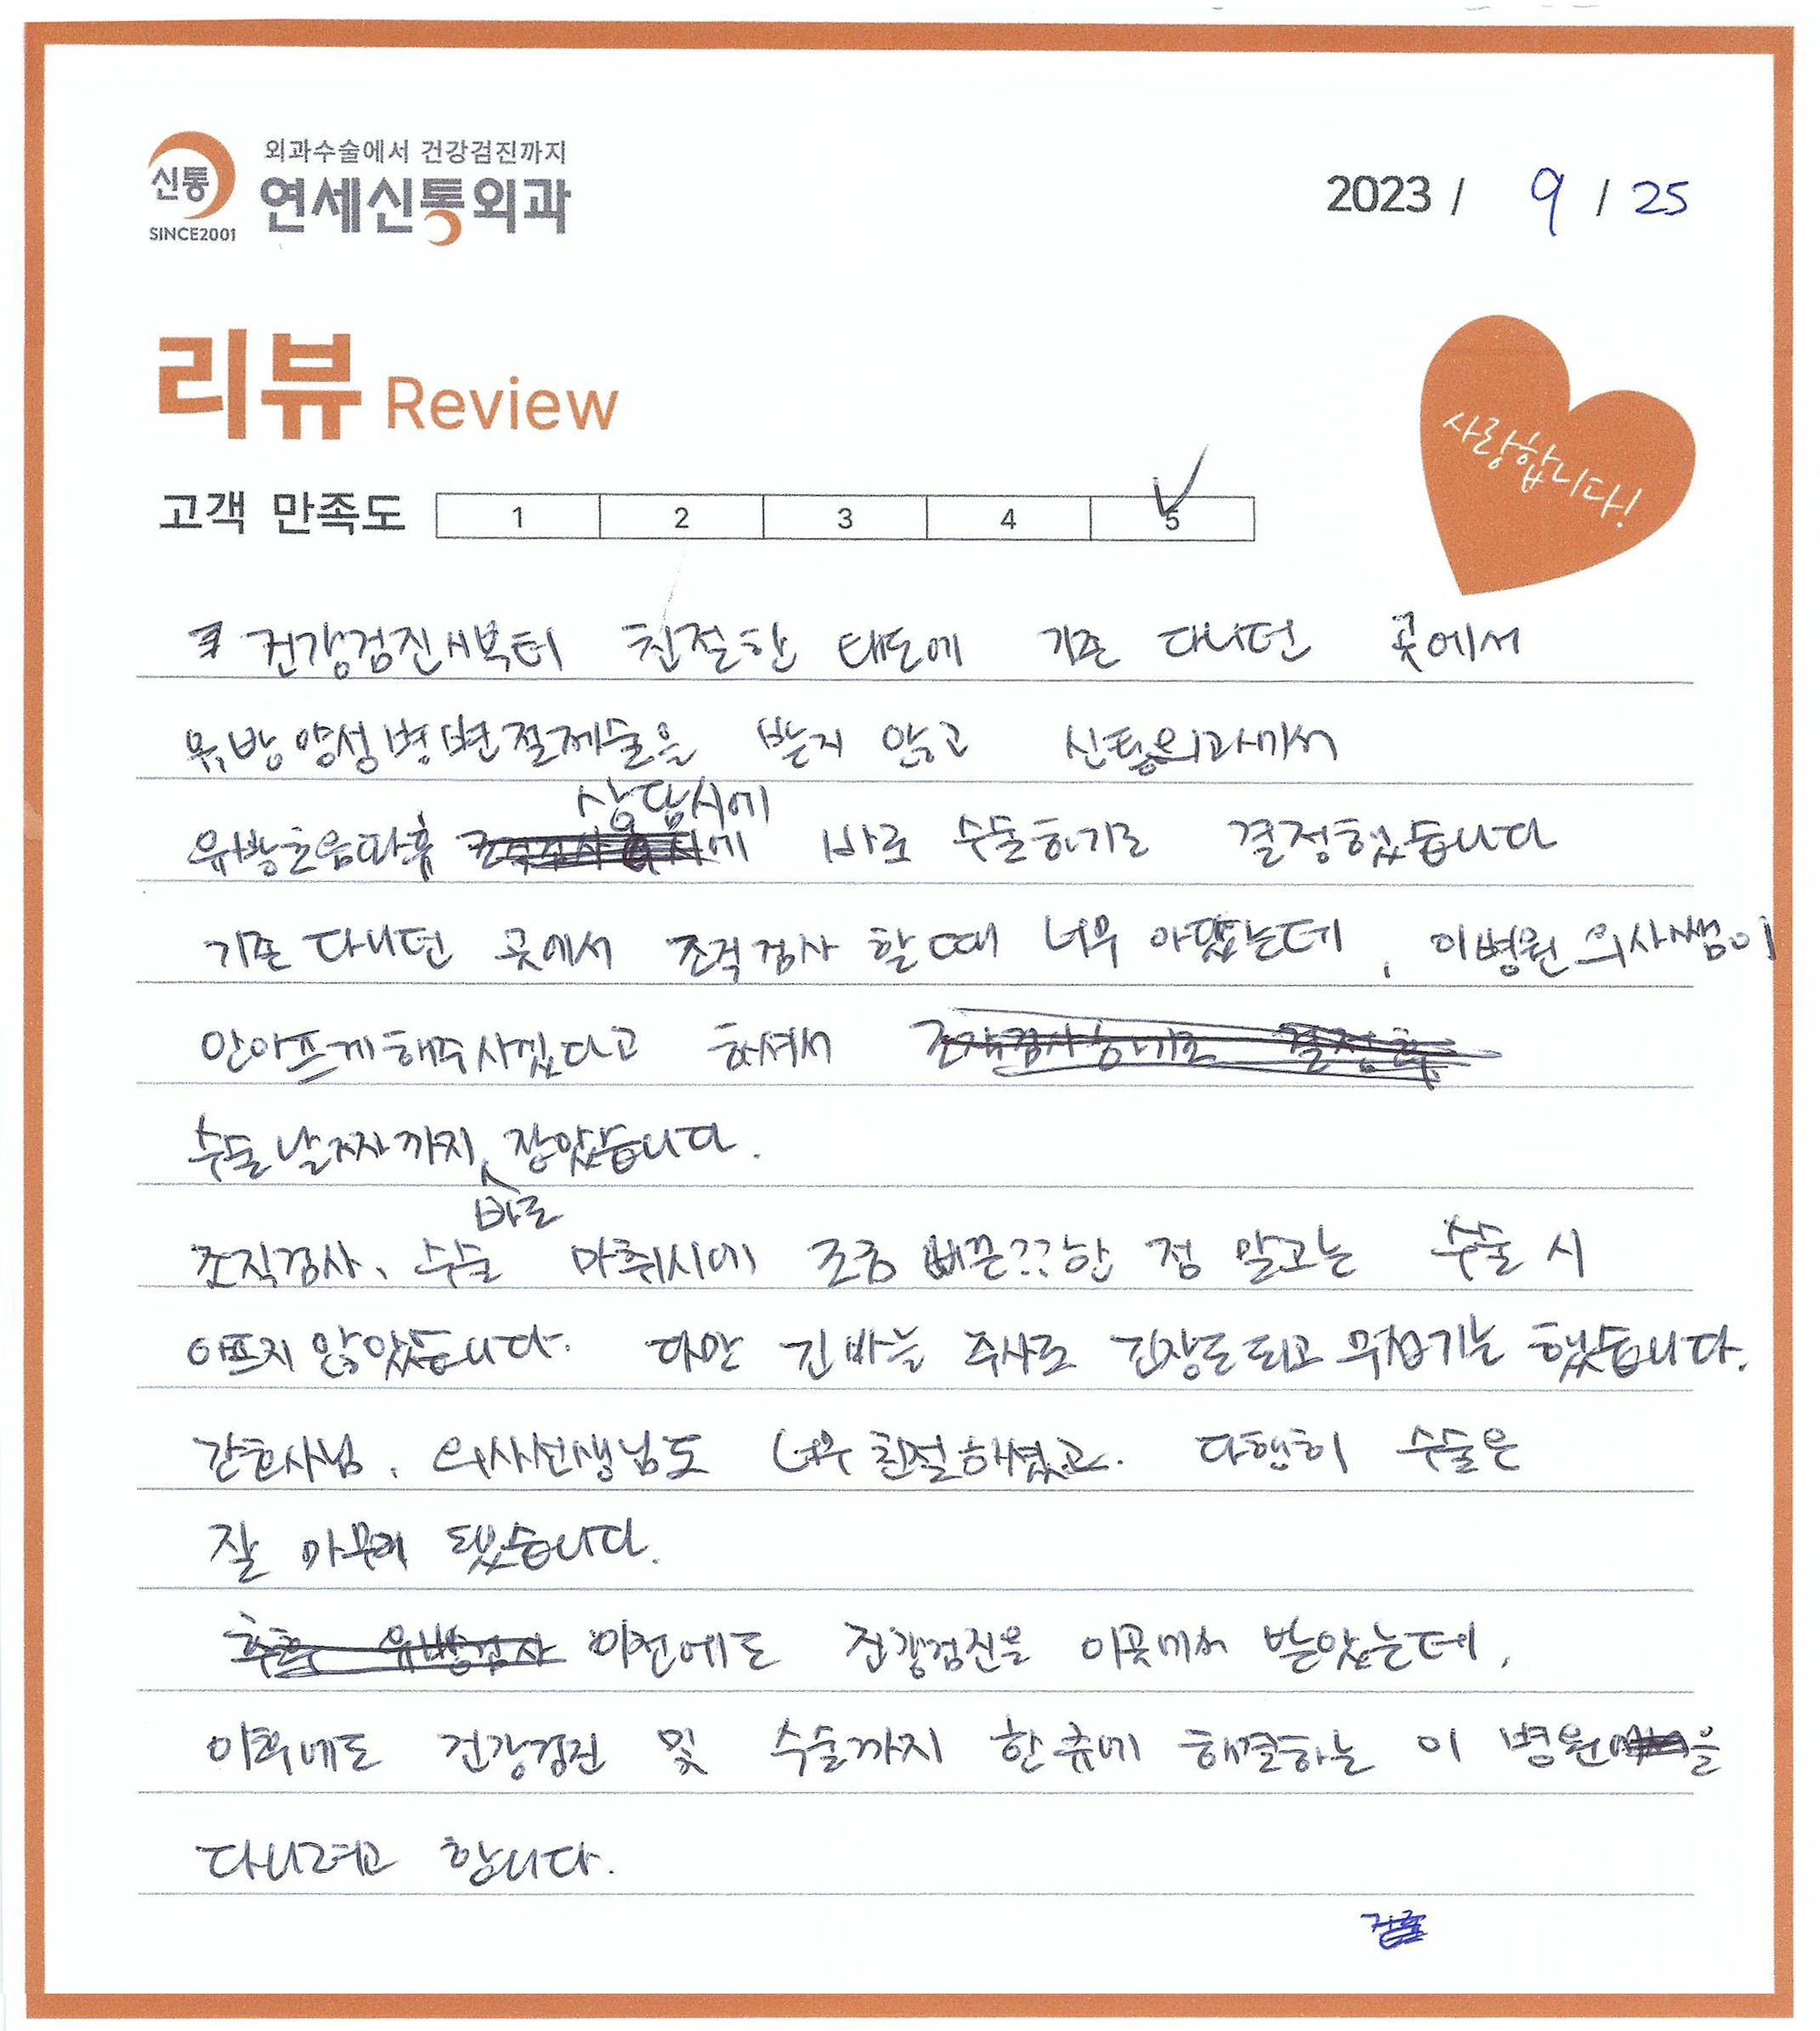 신통
SINCE2001
외과수술에서 건강검진까지
연세신통외과
2023 / 9 / 25
리뷰 Review
사랑합니다!
고객 만족도 1 2 3 4 5
건강검진시부터 친절한 태도에 기존 다니던 곳에서
유방양성병변절제술을 받지 않고 신통외과에서
상담시에
유방초음파후 바로 수술하기로 결정했습니다
기존 다니던 곳에서 조직검사 할때 너무 아팠는데, 이병원 의사쌤이
안아프게해주시겠다고 하셔서
수술날짜까지 잡았습니다.
바로
조직검사, 수술 마취시에 조금 빠끈??한 점 말고는 수술 시
아프지 않았습니다. 다만 긴바늘 주사로 긴장도되고 무섭기는 했습니다.
간호사님, 의사선생님도 너무 친절하셨고. 다행히 수술은
잘 마무리 됐습니다.
이전에도 건강검진을 이곳에서 받았는데,
이후에도 건강검진 및 수술까지 한큐에 해결하는 이 병원을
다니려고 합니다.